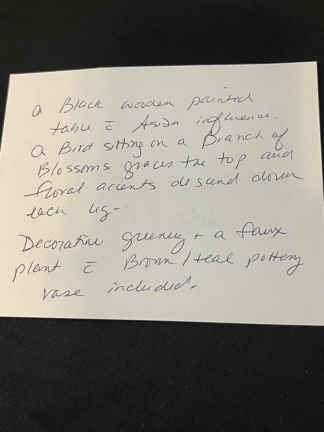 a Black wooden painted
table c̄ Asian influence.
a Bird sitting on a Branch of
Blossoms graces the top and
floral accents descend down
each leg-
Decorative greenery + a faux
plant c̄ Brown/teal pottery
vase included.